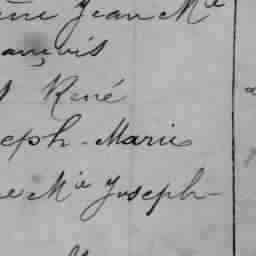 Jean Mie
ançois
René
eph-Marie
e Mie Joseph-